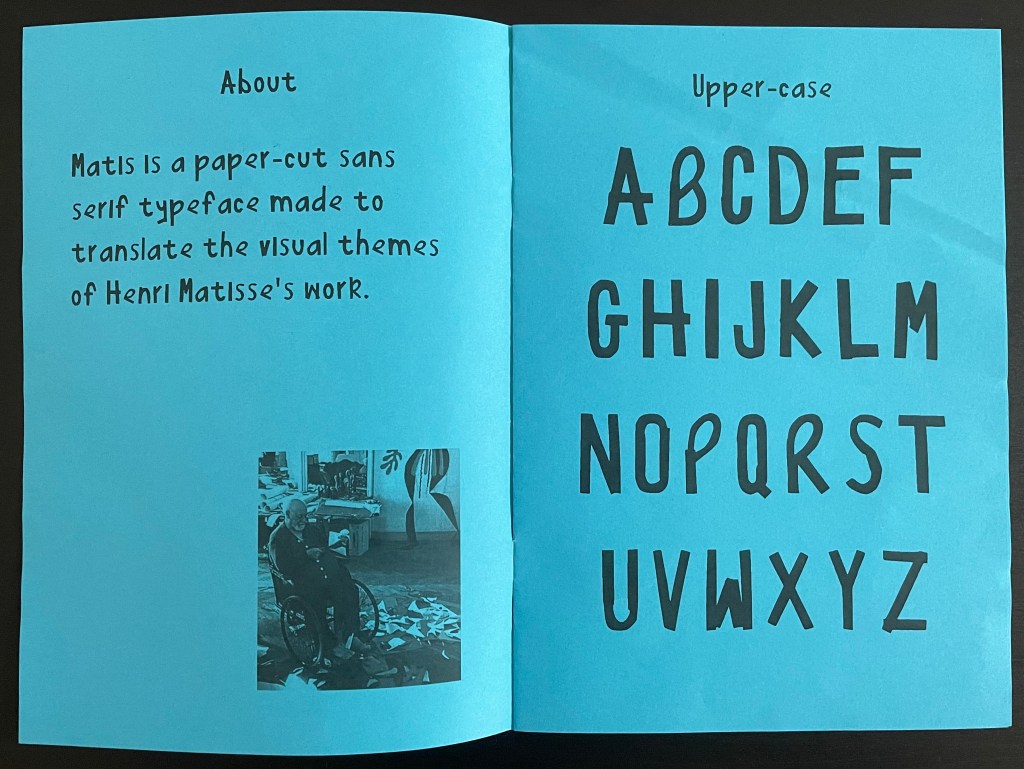 About
Matis is a paper-cut sans
serif typeface made to
translate the visual themes
of Henri Matisse's work.
Upper-case
ABCDEF
GHIJKLM
NOPQRST
UVWXYZ